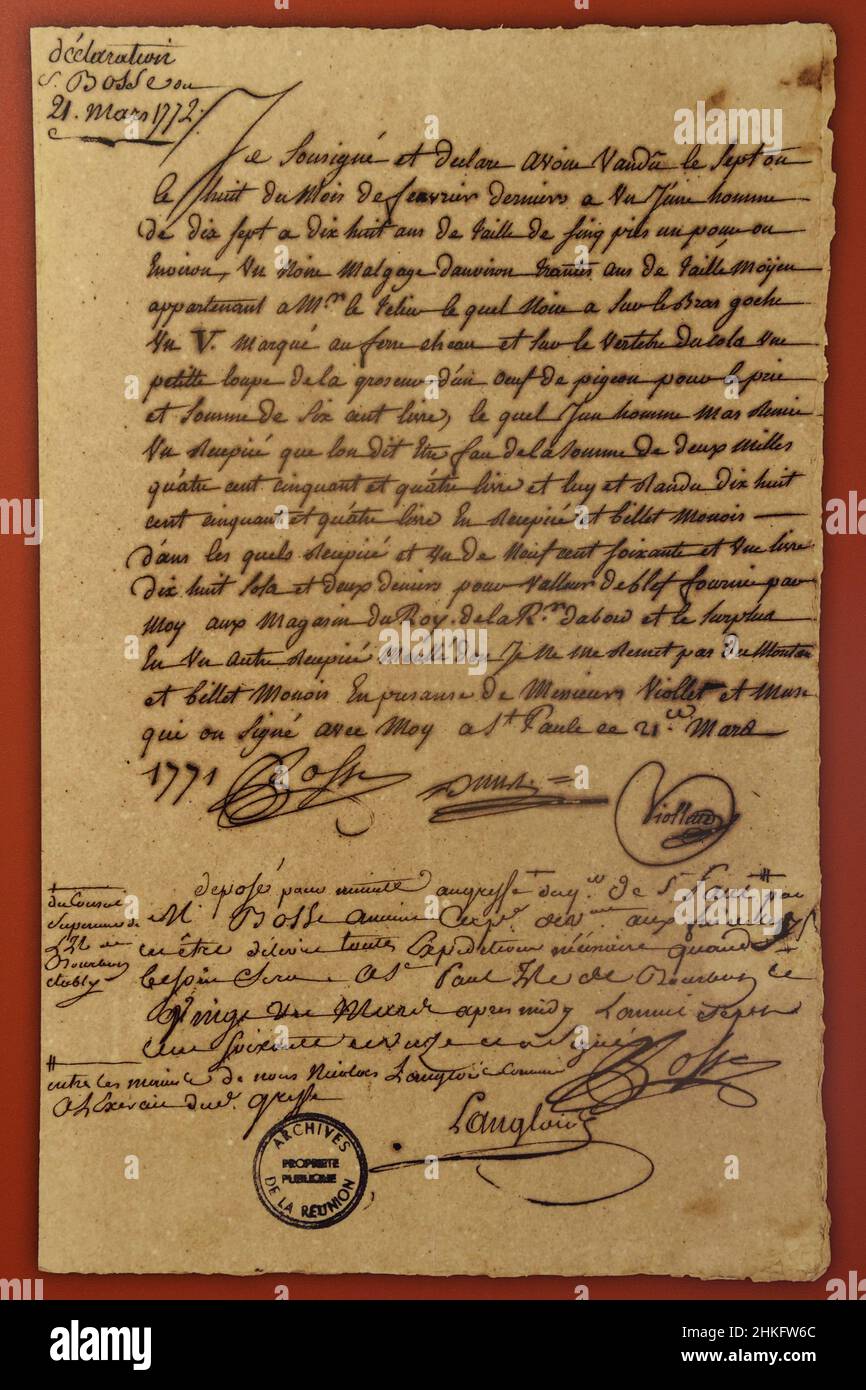 déclaration
S. Bosse du
21. Mars 1772.
Je Sousigné et declare avoire Vandü le Sept ou
le huit du Mois de fevrier derniers a Un J'une homme
de dix sept a dix huit ans de taille de sinq pies un pouse ou
Environ, Un Noire Malgage d'anviron trantes ans de taille Moÿen
appartenant a Mr. le le quel Noire a Sur le Bras goche
Un V. Marqué au ferre cheau et Sur le Vertebre du cola Une
petitte loupe de la groseur d'ün oeuf de pigeon pour le prie
et Somme de Six cent livre, le quel Jun homme Mas Remie
Un Recepicé que lon dit Etre fau de la Somme de deux Milles
quátre cent cinquant et quátre livre et luy et Randu dix huit
cent cinquant et quátre livre En Recepicé et billet Monois —
dáns les quels Recepicé et un de Neuf cent soixante et Une livre
dix huit Sols et deux deniers pour Valleur de blef fournie par
Moy aux Magasin du Roy. de la Rre. dabow et le Surplus
En Un autre Recepicé don Je Ne me Remet pas du Montan
et billet Monois En presanse de Messieurs Viollet et Muse
qui on Signé avec Moy a St. Paule ce 21ce. Mars
1771 Bosse
Viollet
deposé pour minute au greffe du qer. de St. Paul par
M. Bosse ancien aux fins
en être délivré toutes Expeditions nécésaire quand
besoin Sera A St. Paul Isle de Bourbon ce
Vingt Un Mars apres midy Lanmil Sept
Cen Soixante et onze et a Signé
du Conseil
Superieure de
L'Isle de
Bourbon
étably
entre les mains de nous Nicolas Langlois Commis
a L'Exercice dud. greffe
Bosse
Langlois
ARCHIVES
PROPRIETE
PUBLIQUE
DE LA REUNION
alamy
Image ID: 2HKFW6C
www.alamy.com